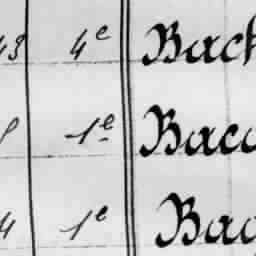 43 4e Bach
1e Baca
4 1e Bag